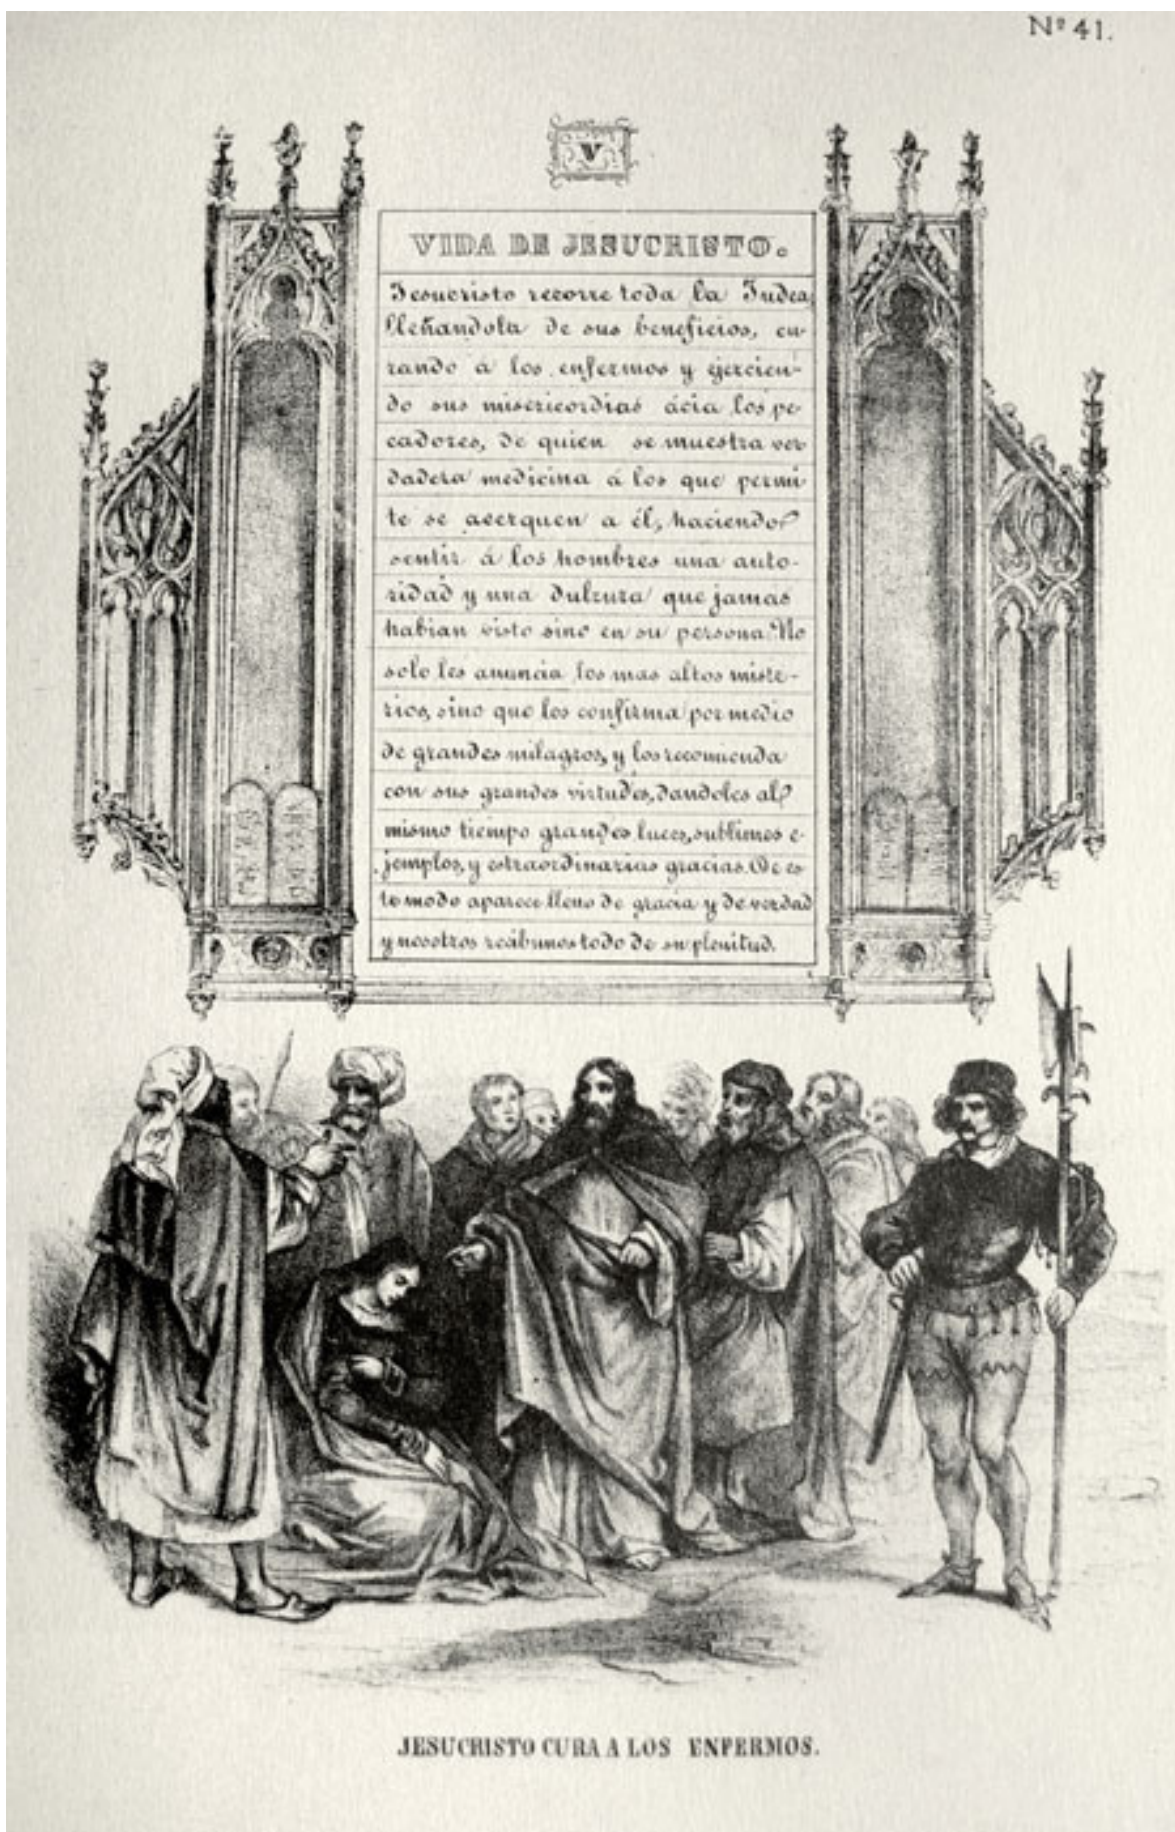 Nº 41.
V
VIDA DE JESUCRISTO.
Jesucristo recorre toda la Judea,
lleñandola de sus beneficios, cu-
rando á los enfermos y ejercien-
do sus misericordias ácia los pe-
cadores, de quien se muestra ver
dadera medicina á los que permi-
te se acerquen a él, haciendo
sentir á los hombres una auto-
ridad y una dulzura que jamas
habian visto sino en su persona. No
solo les anuncia los mas altos miste-
rios, sino que los confirma por medio
de grandes milagros, y los recomienda
con sus grandes virtudes, dandoles al
mismo tiempo grandes luces, sublimes e-
jemplos, y estraordinarias gracias. De es
te modo aparece lleno de gracia y de verdad
y nosotros recibimos todo de su plenitud.
JESUCRISTO CURA A LOS ENFERMOS.